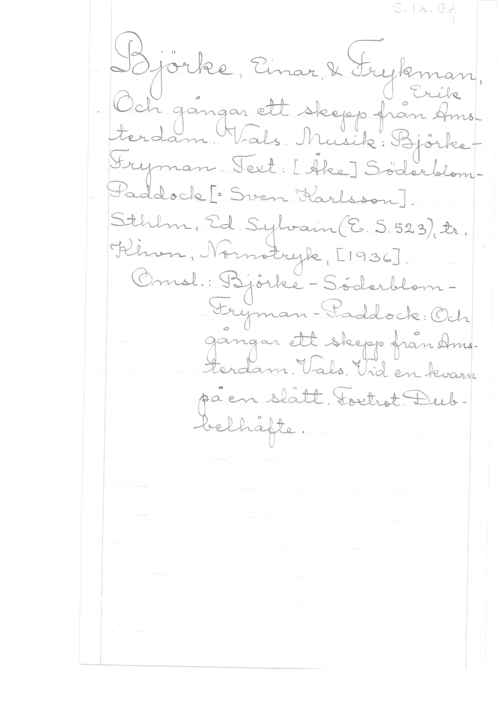 Björke, Einar, & Frykman,
Erik
Och gångar ett skepp från Ams-
terdam. Vals. Musik: Björke-
Fryman. Text: [Åke] Söderblom-
Paddock [= Sven Karlsson].
Sthlm, Ed. Sylvain (E. S. 523), tr.
Khvn, Nornotryk, [1936].
Omsl.: Björke - Söderblom -
Fryman - Paddock: Och
gångar ett skepp från Ams-
terdam. Vals. Vid en kvarn
på en slått. Foxtrot. Dub-
belhäfte.